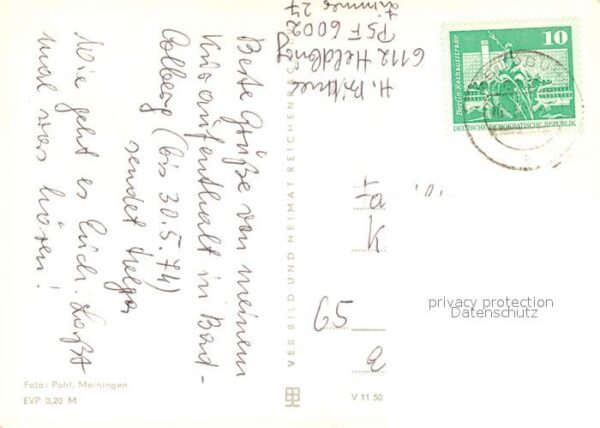 Beste Grüße von meinem
Kuraufenthalt in Bad-
Colberg (bis 30.5.74)
sendet Helga
Wie geht es Euch. Laßt
mal was hören!
H.
6112 Heldburg
PSF 6002
Zimmer 27
VEB BILD UND HEIMAT REICHENBACH
10
Berlin, Rathausstraße
DEUTSCHE DEMOKRATISCHE REPUBLIK
Fa
K
65
privacy protection
Datenschutz
Foto: Pohl, Meiningen
EVP 0,20 M
V 11 50